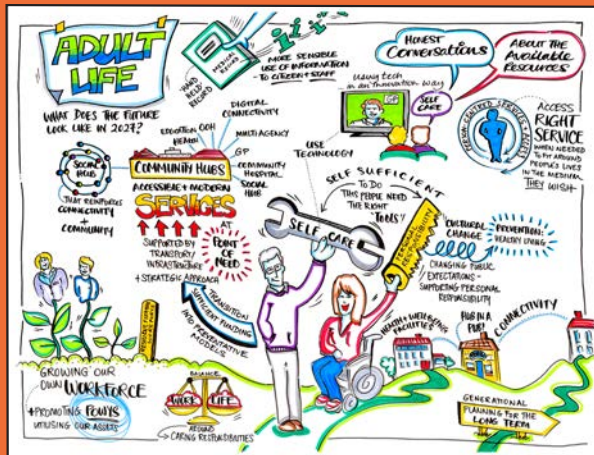 ADULT
LIFE
WHAT DOES THE FUTURE
LOOK LIKE IN 2027?
HAND
HELD
RECORD
MEDICAL
RECORD
MORE SENSIBLE
USE OF INFORMATION
- TO CITIZEN + STAFF
HONEST
Conversations
ABOUT THE
Available
RESOURCES
Using tech
in an innovative way
GP
SELF
CARE
USE
TECHNOLOGY
PERSON-CENTRED SERVICES + ACCESS
ACCESS
RIGHT
SERVICE
WHEN NEEDED
TO FIT AROUND
PEOPLE'S LIVES
IN THE MEDIUM
THEY WISH
SOCIAL
HUB
THAT REINFORCES
CONNECTIVITY
+
COMMUNITY
EDUCATION
HEALTH
OOH
DIGITAL
CONNECTIVITY
MULTI AGENCY
GP
COMMUNITY
HOSPITAL
SOCIAL
HUB
COMMUNITY HUBS
ACCESSIBLE + MODERN
SERVICES
AT
POINT
OF
NEED
SUPPORTED BY
TRANSPORT/
INFRASTRUCTURE
+ STRATEGIC APPROACH
SELF SUFFICIENT
TO DO
THIS PEOPLE NEED
THE RIGHT
"TOOLS"
SELF CARE
PERSONAL
RESPONSIBILITY
CULTURAL
CHANGE
PREVENTION:
HEALTHY LIVING
CHANGING PUBLIC
EXPECTATIONS -
SUPPORTING PERSONAL
RESPONSIBILITY
TRANSITION
SUFFICIENT FUNDING
INTO PREVENTATIVE
MODELS
HEALTH + WELL-BEING
FACILITIES
HUB IN A
PUB!
CONNECTIVITY
GROWING OUR
OWN WORKFORCE
+ PROMOTING POWYS
UTILISING OUR ASSETS
BALANCE
WORK LIFE
AROUND
CARING RESPONSIBILITIES
GENERATIONAL
PLANNING FOR THE
LONG TERM